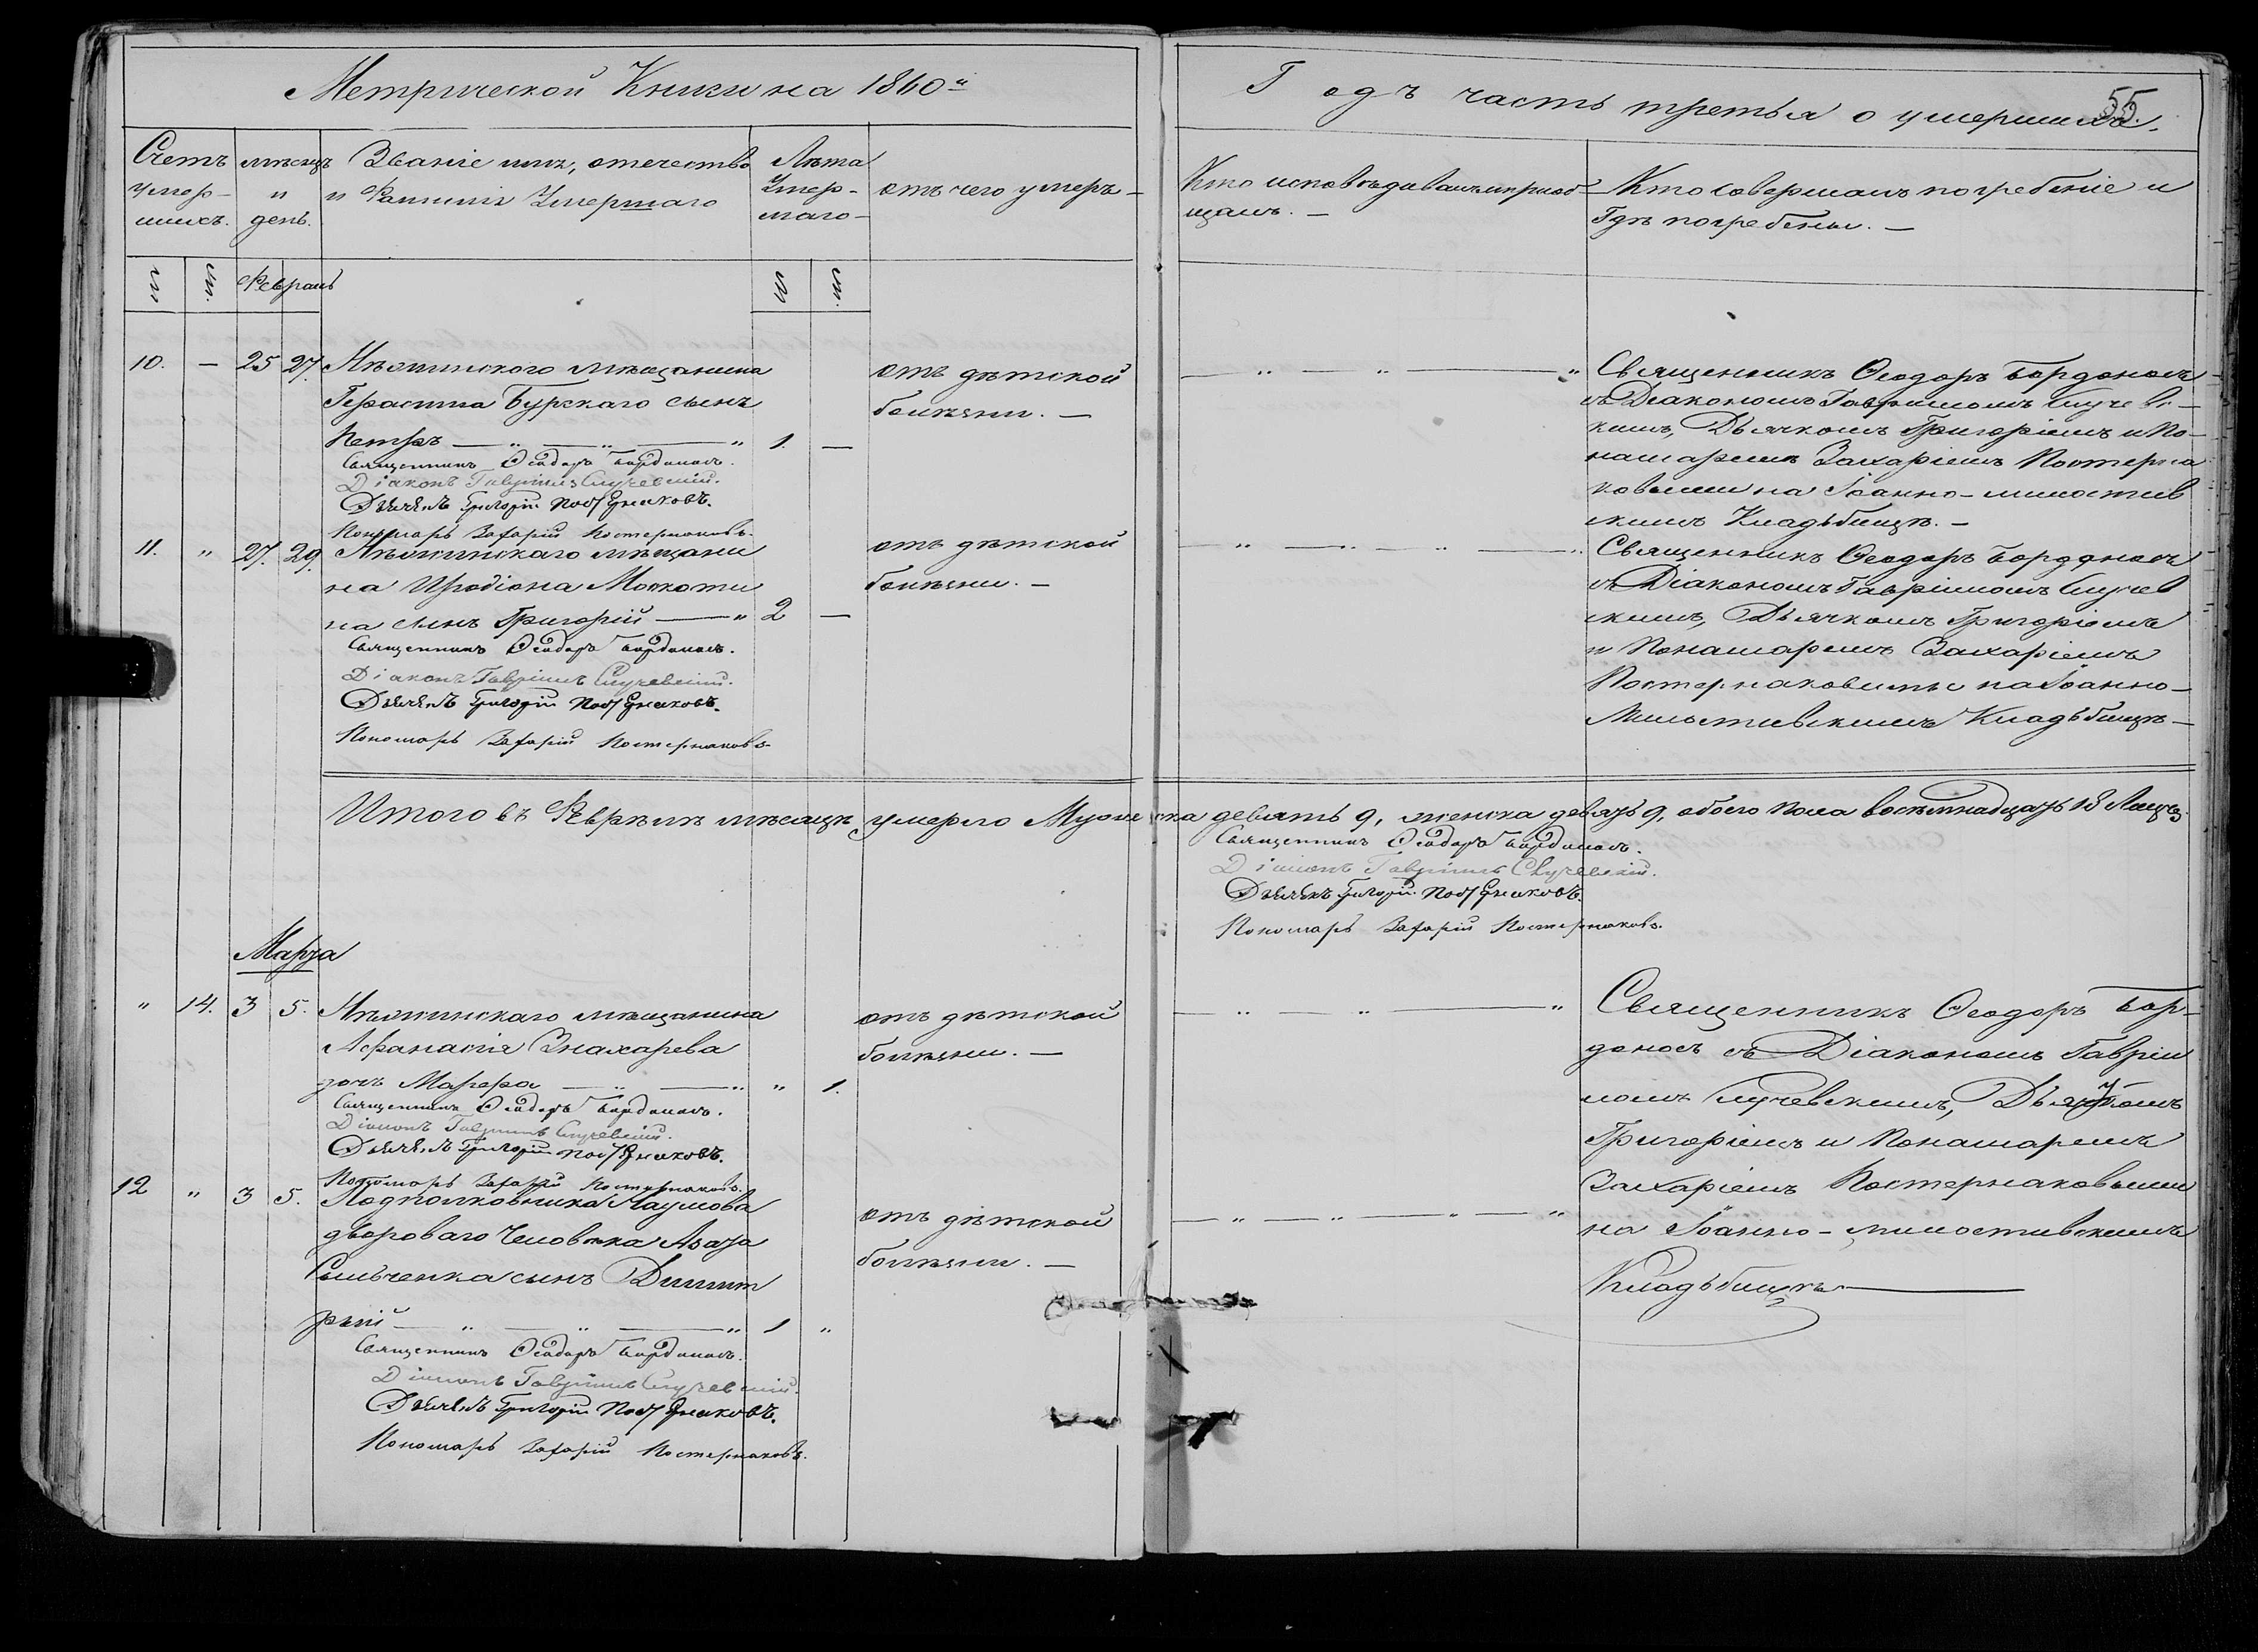 Метрической Книги на 1860й
Годъ часть третья о умершихъ.
55.
Счетъ умер-шихъ.
мѣсяцъ и день.
Званіе имя, отечество
и Фамилія Умершаго
Лѣта Умер-шаго
отъ чего умеръ
Кто исповѣдивалъ и приоб-
щалъ. —
Кто совершалъ погребеніе и
Гдѣ погребены. —
Февраль
10. — 25 27. Нѣжинского мѣщанина
Герасима Бурскаго сынъ
Петръ — „ — „ — „ 1. —
Священникъ Ѳеодоръ Бордоносъ.
Діаконъ Гавріилъ Случевскій.
Дьячекъ Григорій Постернаковъ.
Пономарь Захарій Постернаковъ.
отъ дѣтской
болѣзни. —
— „ — „ — „
Священникъ Ѳеодоръ Бордоносъ
съ Діакономъ Гавріиломъ Случевс-
кимъ, Дьячкомъ Григоріемъ и По-
намаремъ Захаріемъ Постерна
ковыми на Іоанно-милостив
скимъ Кладьбищѣ. —
11. „ 27. 29. Нѣжинскаго мѣщани
на Иродіона Москоти
на сынъ Григорій — „ 2 —
Священникъ Ѳеодоръ Бордоносъ.
Діаконъ Гавріилъ Случевскій.
Дьячекъ Григорій Постернаковъ.
Пономарь Захарій Постернаковъ.
отъ дѣтской
болѣзни. —
— „ — „ — „ — „
Священникъ Ѳеодоръ Бордоносъ
съ Діакономъ Гавріиломъ Случев
скимъ, Дьячкомъ Григоріемъ
и Понамаремъ Захаріемъ
Постернаковыми на Іоанно-
Милостивскимъ Кладьбищѣ —
Итого въ Февралѣ мѣсяцѣ умерло Мужеска девять 9, женска девять 9, обоего пола восемнадцать 18 Лицъ
Священникъ Ѳеодоръ Бордоносъ.
Діаконъ Гавріилъ Случевскій.
Дьячекъ Григорій Постернаковъ.
Пономарь Захарій Постернаковъ.
Марта
„ 14. 3 5. Нѣжинскаго мѣщанина
Афанасія Знахарева
дочь Марфа — „ — „ „ 1.
Священникъ Ѳеодоръ Бордоносъ.
Діаконъ Гавріилъ Случевскій.
Дьячекъ Григорій Постернаковъ.
Пономарь Захарій Постернаковъ.
отъ дѣтской
болѣзни. —
— „ — „ — „
Священникъ Ѳеодоръ Бор-
доносъ съ Діакономъ Гавріи
ломъ Случевскимъ, Дьячкомъ
Григоріемъ и Понамаремъ
Захаріемъ Постернаковыми
на Іоанно-милостивскимъ
Кладьбищѣ —
12 „ 3 5. Подполковника Наумова
двороваго Человѣка
сынъ Димит
рій — „ — „ — „ 1 „
Священникъ Ѳеодоръ Бордоносъ.
Діаконъ Гавріилъ Случевскій.
Дьячекъ Григорій Постернаковъ.
Пономарь Захарій Постернаковъ.
отъ дѣтской
болѣзни. —
— „ — „ — „ — „